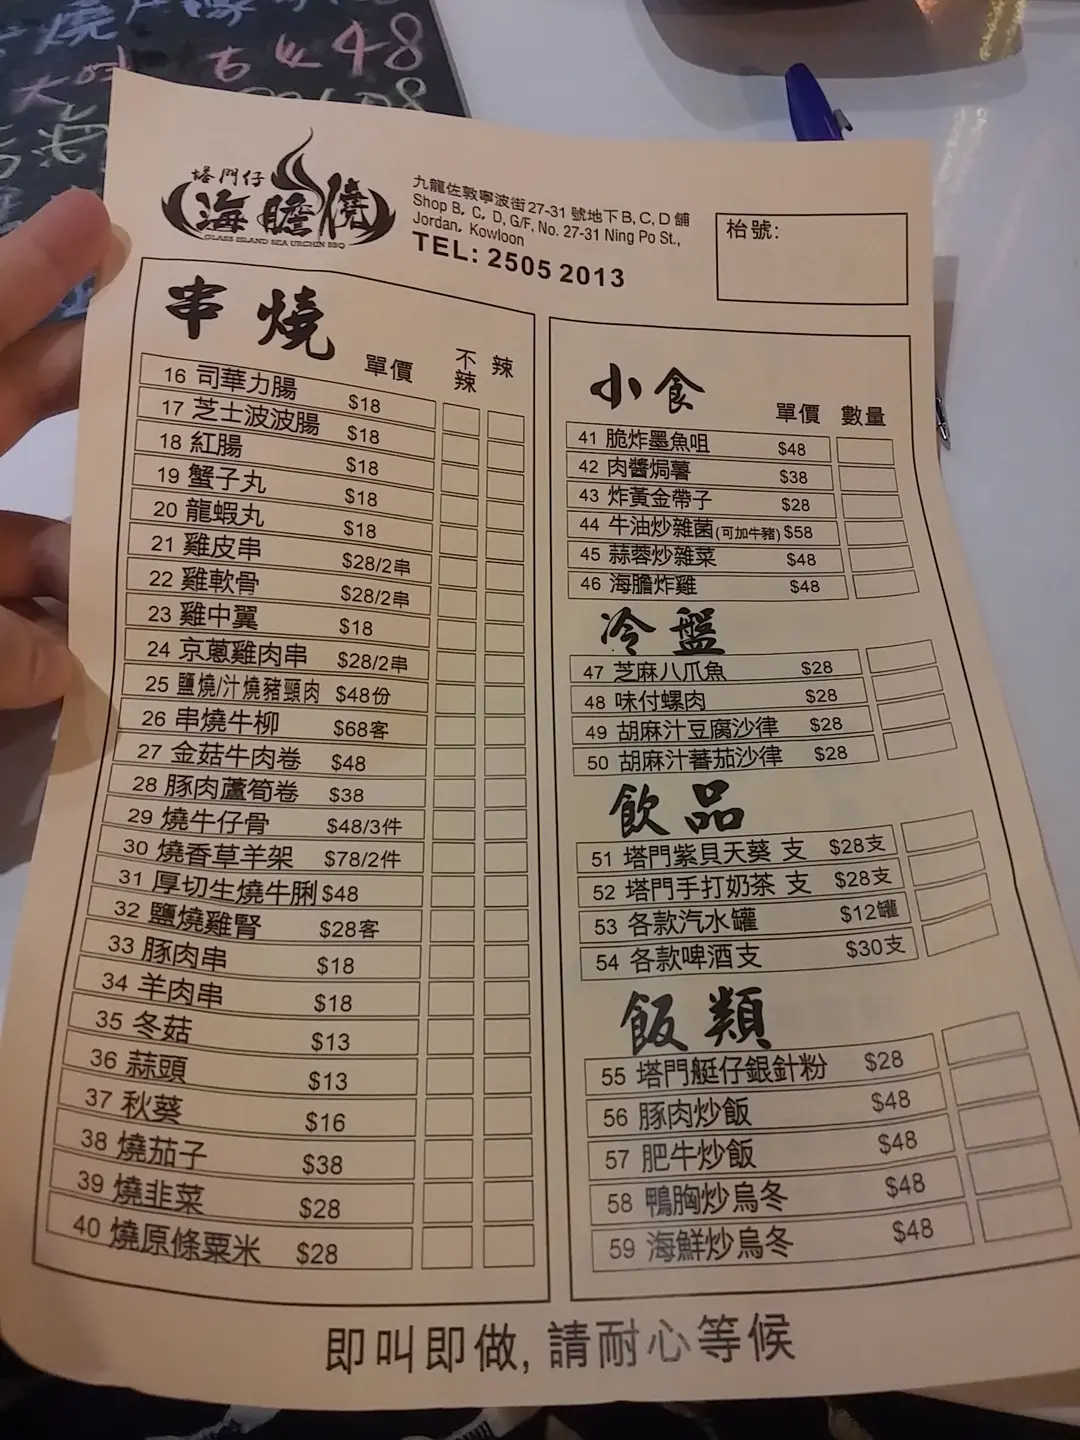 大
48
塔門仔
海膽燒
GLASS ISLAND SEA URCHIN BBQ
九龍佐敦寧波街27-31 號地下B, C, D 舖
Shop B, C, D, G/F, No. 27-31 Ning Po St.,
Jordan, Kowloon
TEL: 2505 2013
枱號:
串燒 單價 不辣 辣
16 司華力腸 $18
17 芝士波波腸 $18
18 紅腸 $18
19 蟹子丸 $18
20 龍蝦丸 $18
21 雞皮串 $28/2串
22 雞軟骨 $28/2串
23 雞中翼 $18
24 京蔥雞肉串 $28/2串
25 鹽燒/汁燒豬頸肉 $48份
26 串燒牛柳 $68客
27 金菇牛肉卷 $48
28 豚肉蘆筍卷 $38
29 燒牛仔骨 $48/3件
30 燒香草羊架 $78/2件
31 厚切生燒牛脷 $48
32 鹽燒雞腎 $28客
33 豚肉串 $18
34 羊肉串 $18
35 冬菇 $13
36 蒜頭 $13
37 秋葵 $16
38 燒茄子 $38
39 燒韭菜 $28
40 燒原條粟米 $28
小食 單價 數量
41 脆炸墨魚咀 $48
42 肉醬焗薯 $38
43 炸黃金帶子 $28
44 牛油炒雜菌(可加牛豬) $58
45 蒜蓉炒雜菜 $48
46 海膽炸雞 $48
冷盤
47 芝麻八爪魚 $28
48 味付螺肉 $28
49 胡麻汁豆腐沙律 $28
50 胡麻汁蕃茄沙律 $28
飲品
51 塔門紫貝天葵 支 $28支
52 塔門手打奶茶 支 $28支
53 各款汽水罐 $12罐
54 各款啤酒支 $30支
飯類
55 塔門艇仔銀針粉 $28
56 豚肉炒飯 $48
57 肥牛炒飯 $48
58 鴨胸炒烏冬 $48
59 海鮮炒烏冬 $48
即叫即做, 請耐心等候